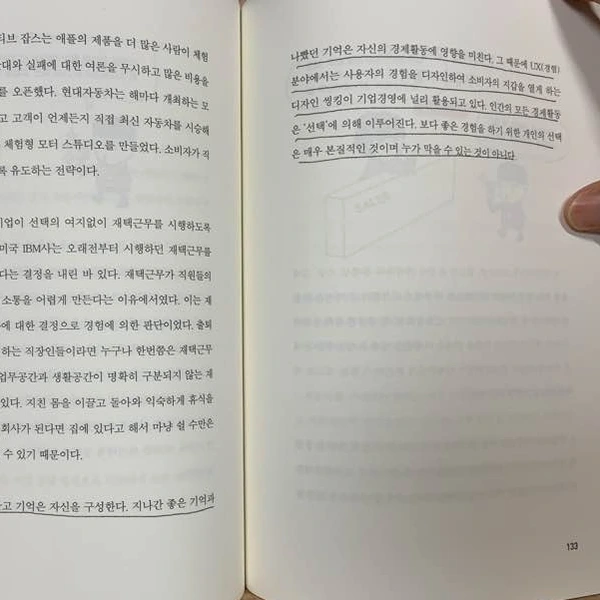 티브 잡스는 애플의 제품을 더 많은 사람이 체험
대와 실패에 대한 여론을 무시하고 많은 비용을
를 오픈했다. 현대자동차는 해마다 개최하는 모
고 고객이 언제든지 직접 최신 자동차를 시승해
체험형 모터 스튜디오를 만들었다. 소비자가 직
록 유도하는 전략이다.
기업이 선택의 여지없이 재택근무를 시행하도록
미국 IBM사는 오래전부터 시행하던 재택근무를
다는 결정을 내린 바 있다. 재택근무가 직원들의
소통을 어렵게 만든다는 이유에서였다. 이는 재
에 대한 결정으로 경험에 의한 판단이었다. 출퇴
하는 직장인들이라면 누구나 한번쯤은 재택근무
업무공간과 생활공간이 명확히 구분되지 않는 재
있다. 지친 몸을 이끌고 돌아와 익숙하게 휴식을
회사가 된다면 집에 있다고 해서 마냥 쉴 수만은
수 있기 때문이다.
고 기억은 자신을 구성한다. 지나간 좋은 기억과
나빴던 기억은 자신의 경제활동에 영향을 미친다. 그 때문에 UX(경험)
분야에서는 사용자의 경험을 디자인하여 소비자의 지갑을 열게 하는
디자인 씽킹이 기업경영에 널리 활용되고 있다. 인간의 모든 경제활동
은 '선택'에 의해 이루어진다. 보다 좋은 경험을 하기 위한 개인의 선택
은 매우 본질적인 것이며 누가 막을 수 있는 것이 아니다.
133